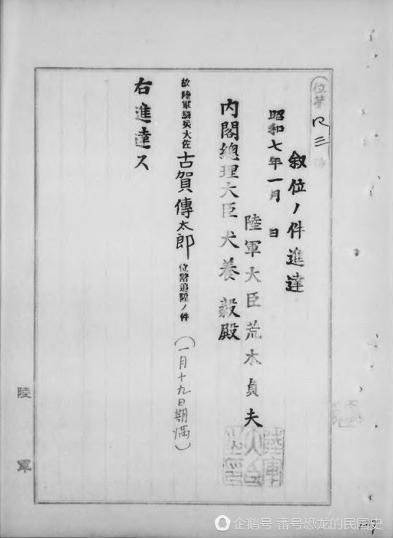 叙位ノ件進達
昭和七年一月　日
陸軍大臣荒木貞夫
内閣總理大臣犬養毅殿
故陸軍騎兵大佐古賀傳太郎位階追陞ノ件(一月十九日期満)
右進達ス
陸軍
企鹅号 番号恐龙的民国史